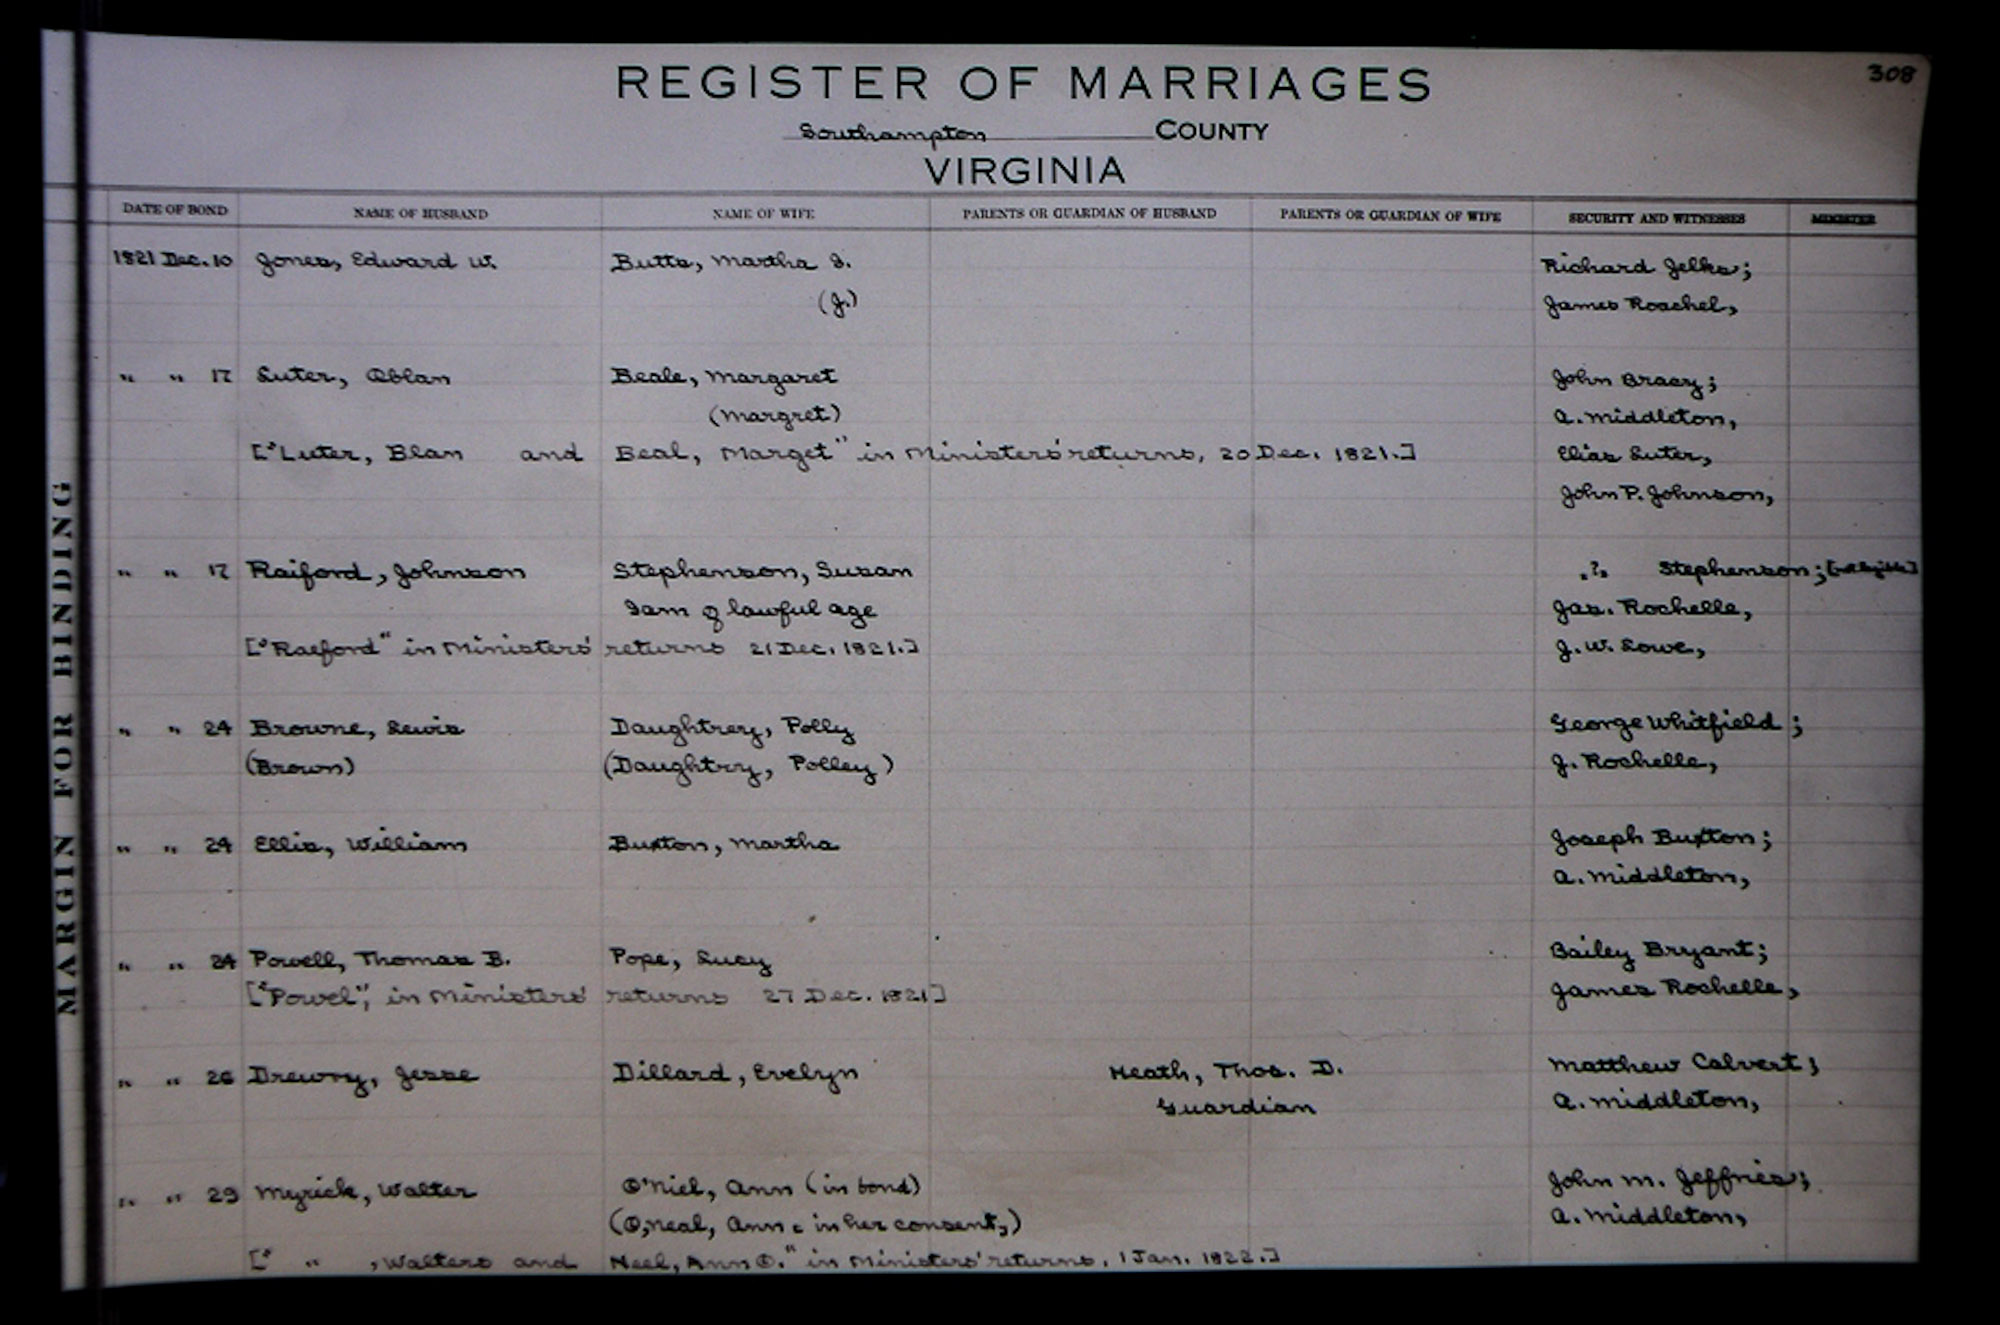 308
REGISTER OF MARRIAGES
Southampton COUNTY
VIRGINIA
DATE OF BOND NAME OF HUSBAND NAME OF WIFE PARENTS OR GUARDIAN OF HUSBAND PARENTS OR GUARDIAN OF WIFE SECURITY AND WITNESSES MINISTER
1821 Dec. 10 Jones, Edward W. Butts, Martha I. Richard Jelks;
(J.) James Roachel,
" " 17 Luter, Oblan Beale, Margaret John Bracy;
(Margret) A. Middleton,
["Luter, Blan and Beal, Marget" in Ministers' returns, 20 Dec. 1821.] Elias Luter,
John P. Johnson,
" " 17 Raiford, Johnson Stephenson, Susan "?" Stephenson; [not legible]
I am of lawful age Jas. Rochelle,
["Raeford" in Ministers' returns 21 Dec. 1821.] J. W. Lowe,
" " 24 Browne, Lewis Daughtrey, Polly George Whitfield;
(Brown) (Daughtry, Polley) J. Rochelle,
" " 24 Ellis, William Buxton, Martha Joseph Buxton;
A. Middleton,
" " 24 Powell, Thomas B. Pope, Lucy Bailey Bryant;
["Powel", in Ministers' returns 27 Dec. 1821] James Rochelle,
" " 26 Drewry, Jesse Dillard, Evelyn Heath, Thos. D. Matthew Calvert;
Guardian A. Middleton,
" " 29 Myrick, Walter O'Niel, Ann (in bond) John M. Jeffries;
(O,neal, Ann c in her consent,) A. Middleton,
[" " , Walters and Neel, Ann O." in Ministers' returns, 1 Jan. 1822.]
MARGIN FOR BINDING